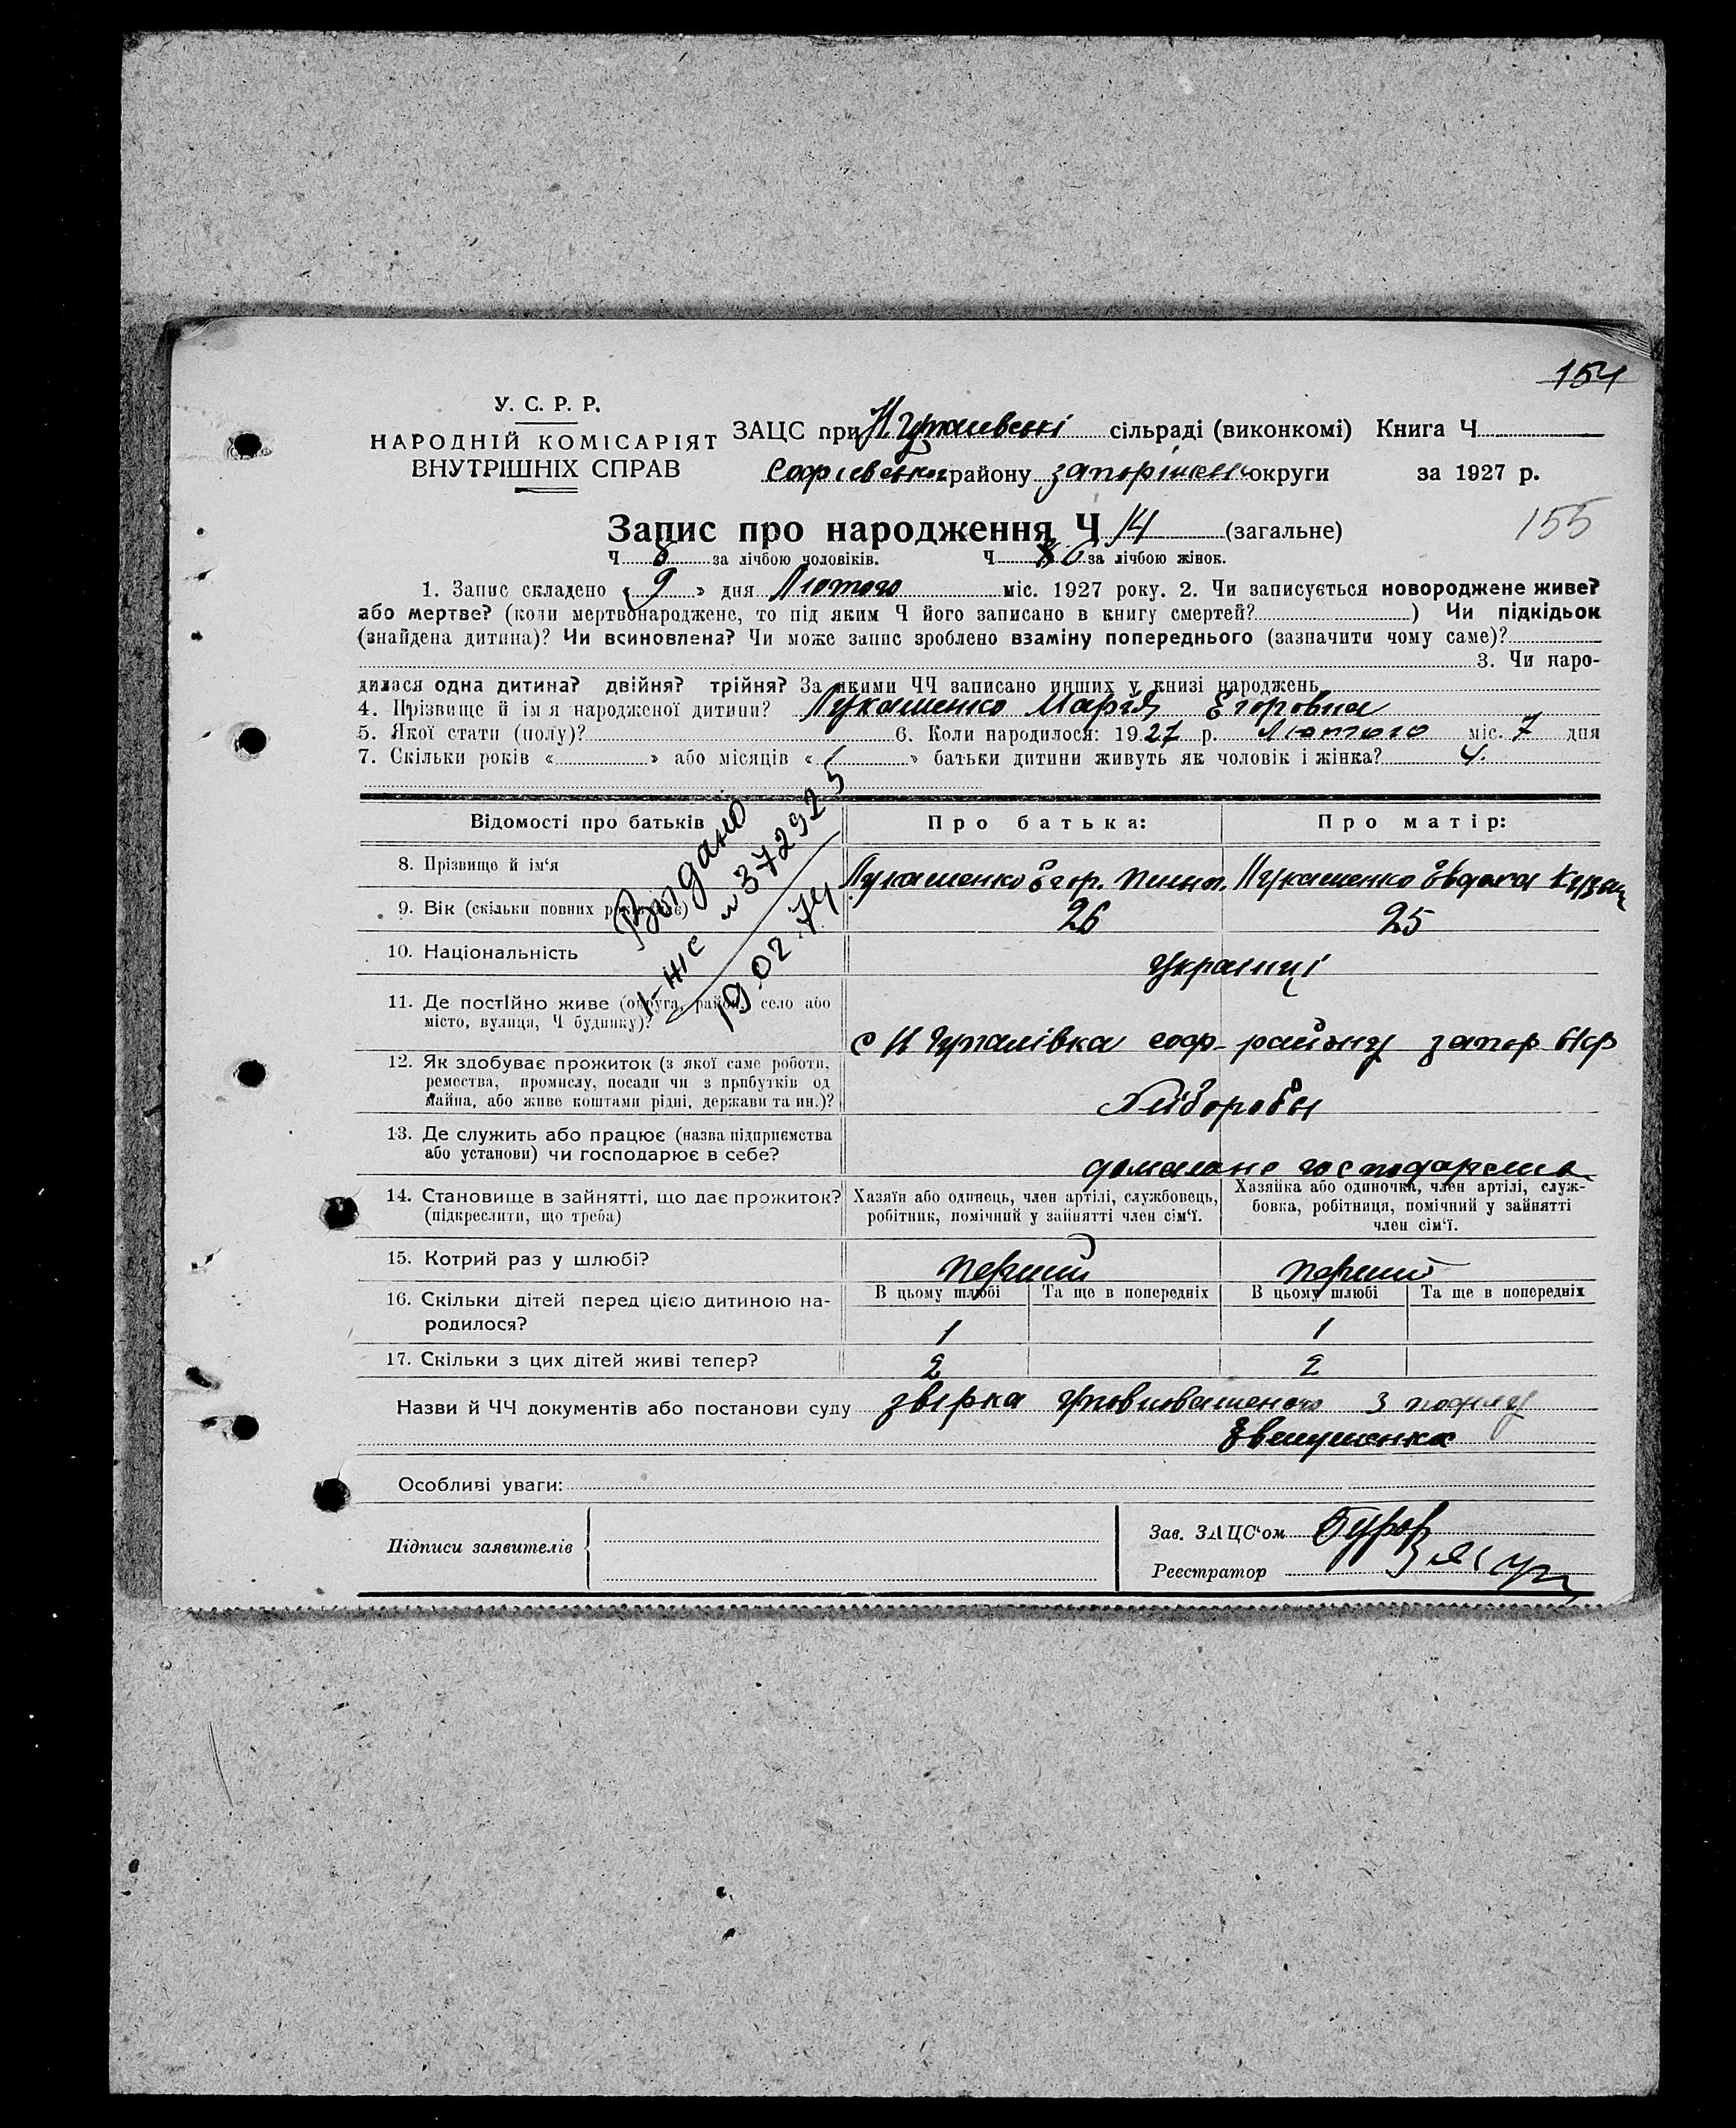 154
У. С. Р. Р.
НАРОДНІЙ КОМІСАРІЯТ
ВНУТРІШНІХ СПРАВ
ЗАЦС при сільраді (виконкомі) Книга Ч
району округи за 1927 р.
155
Запис про народження Ч 14 (загальне)
Ч 8 за лічбою чоловіків. Ч 6 за лічбою жінок.
1. Запис складено « 9 » дня Лютого міс. 1927 року. 2. Чи записується новороджене живе?
або мертве? (коли мертвонароджене, то під яким Ч його записано в книгу смертей? ) Чи підкідьок
(знайдена дитина)? Чи всиновлена? Чи може запис зроблено взаміну попереднього (зазначити чому саме)?
3. Чи наро-
дилася одна дитина? двійня? трійня? За якими ЧЧ записано инших у книзі народжень
4. Прізвище й ім'я народженої дитини? Лукашенко Марія Егоровна
5. Якої стати (полу)? 6. Коли народилося: 1927 р. Лютого міс. 7 дня
7. Скільки років « » або місяців « » батьки дитини живуть як чоловік і жінка? 4.
Видано
372925
19.02.74
Відомості про батьків Про батька: Про матір:
8. Прізвище й ім'я Лукашенко Егор. Лукашенко
9. Вік (скільки повних років має) 26 25
10. Національність Українці
11. Де постійно живе (округа, район, село або
місто, вулиця, Ч будинку)?
району запор
12. Як здобуває прожиток (з якої саме роботи,
ремества, промислу, посади чи з прибутків од
майна, або живе коштами рідні, держави та ин.)?
13. Де служить або працює (назва підприємства
або установи) чи господарює в себе?
14. Становище в зайнятті, що дає прожиток?
(підкреслити, що треба)
Хазяїн або одинець, член артілі, службовець,
робітник, помічний у зайнятті член сім'ї.
Хазяйка або одиночка, член артілі, служ-
бовка, робітниця, помічний у зайнятті
член сім'ї.
15. Котрий раз у шлюбі? перший перший
16. Скільки дітей перед цією дитиною на-
родилося?
В цьому шлюбі Та ще в попередніх В цьому шлюбі Та ще в попередніх
1 1
17. Скільки з цих дітей живі тепер? 2 2
Назви й ЧЧ документів або постанови суду звірка
Особливі уваги:
Підписи заявителів
Зав. ЗАЦС'ом
Реєстратор